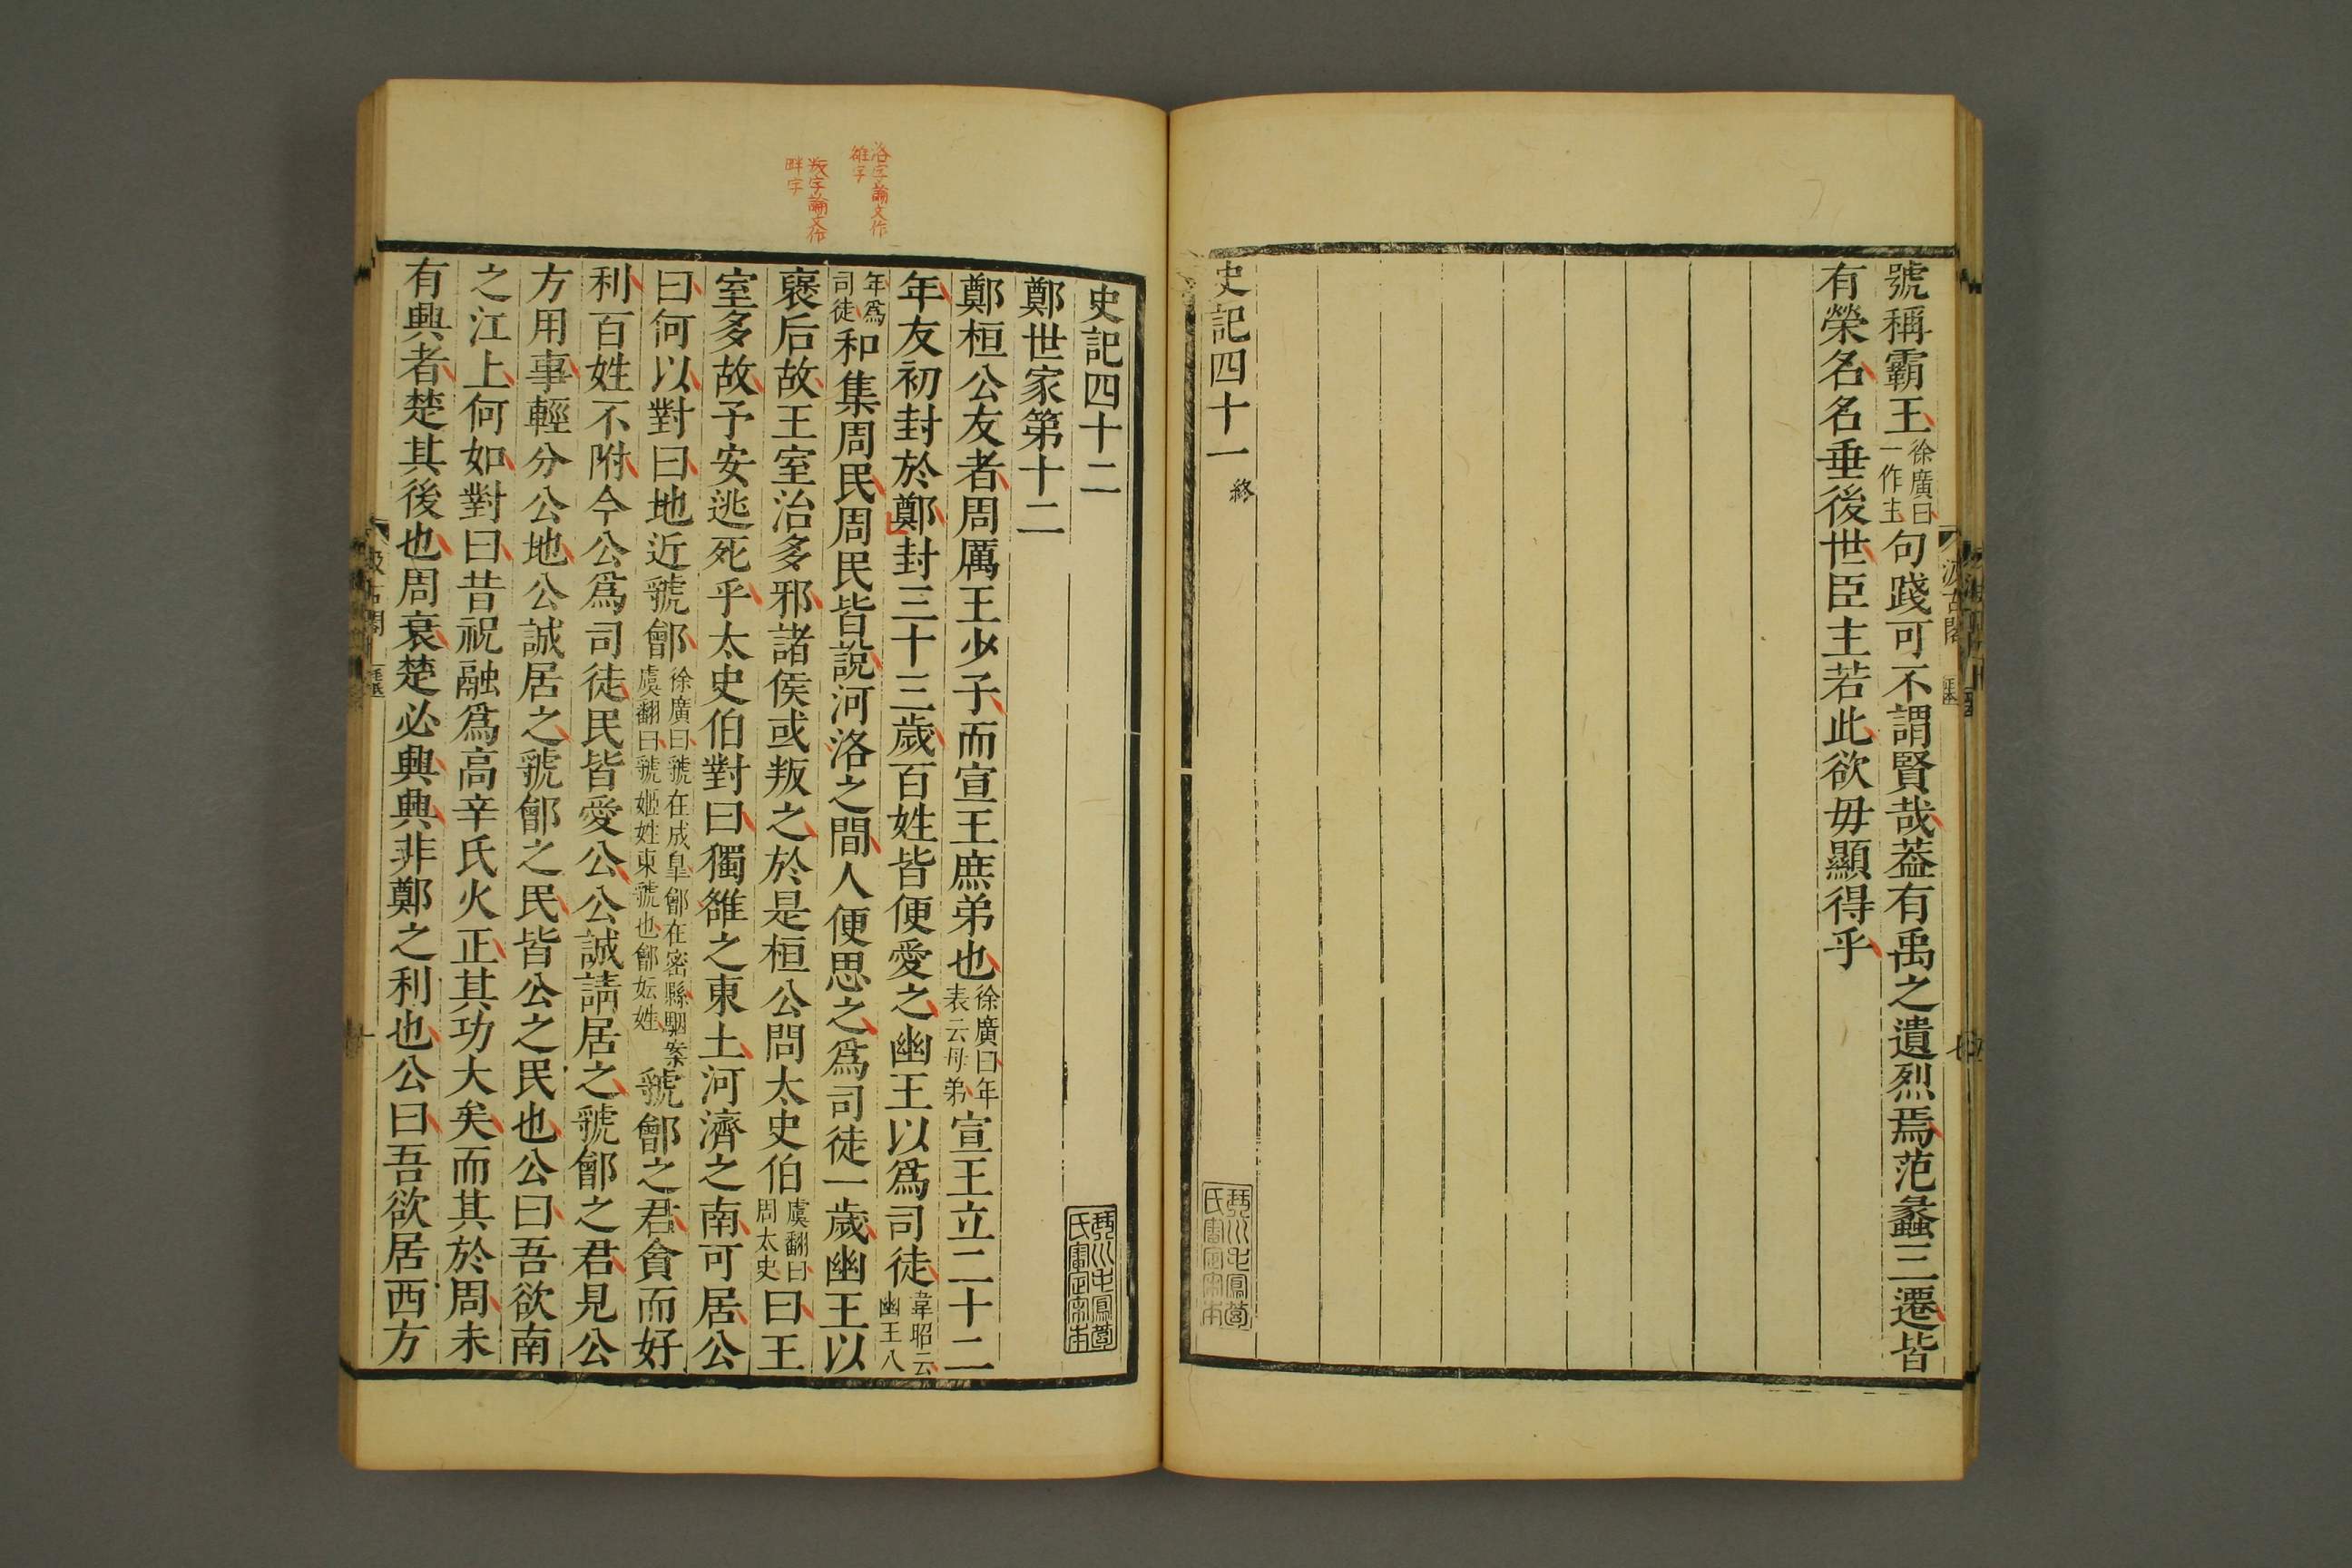 號稱霸王徐廣曰一作主句踐可不謂賢哉葢有禹之遺烈焉范蠡三遷皆
有榮名名垂後世臣主若此欲毋顯得乎
史記四十一 終
洛字論文作
雒字
叛字論文作
畔字
史記四十二
鄭世家第十二
鄭桓公友者周厲王少子而宣王庶弟也徐廣曰年表云母弟宣王立二十二
年友初封於鄭封三十三歲百姓皆便愛之幽王以爲司徒韋昭云幽王八
年爲司徒和集周民周民皆說河洛之間人便思之爲司徒一歲幽王以
襃后故王室治多邪諸侯或叛之於是桓公問太史伯虞翻曰周太史曰王
室多故予安逃死乎太史伯對曰獨雒之東土河濟之南可居公
曰何以對曰地近虢鄶徐廣曰虢在成皐鄶在密縣駰案虞翻曰虢姬姓東虢也鄶妘姓虢鄶之君貪而好
利百姓不附今公爲司徒民皆愛公公誠請居之虢鄶之君見公
方用事輕分公地公誠居之虢鄶之民皆公之民也公曰吾欲南
之江上何如對曰昔祝融爲高辛氏火正其功大矣而其於周未
有興者楚其後也周衰楚必興興非鄭之利也公曰吾欲居西方
汲古閣